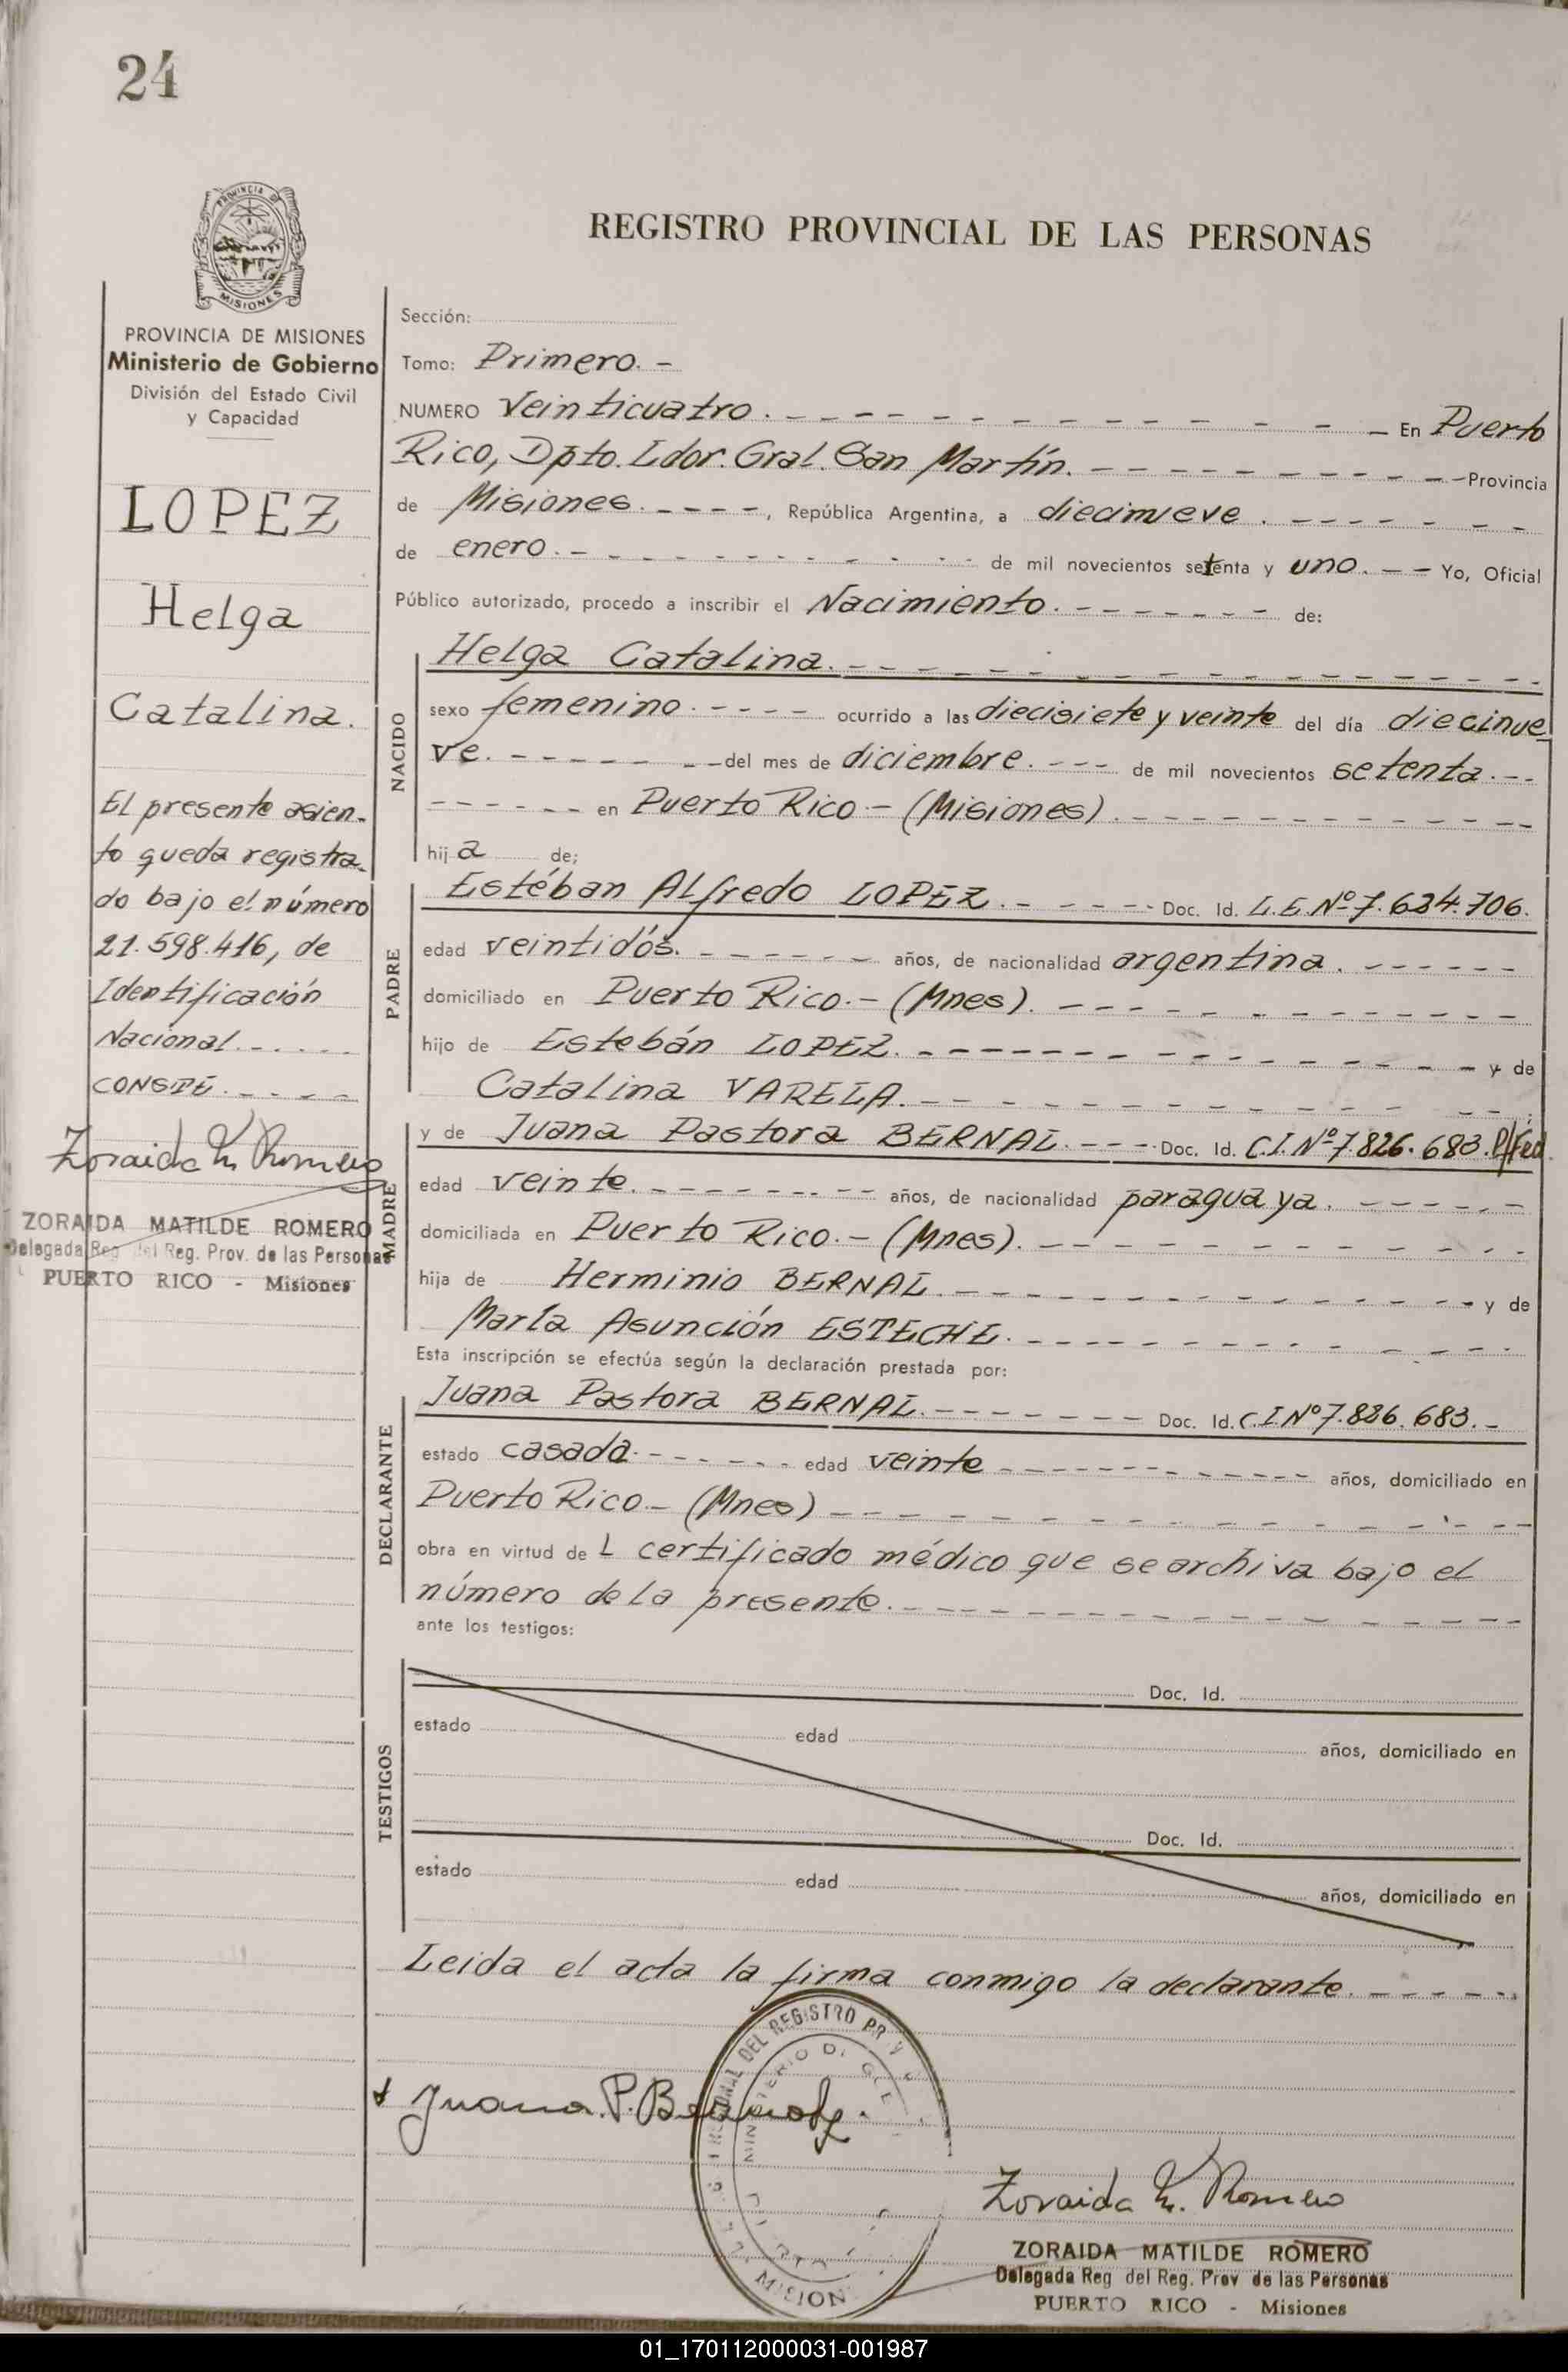 24
PROVINCIA DE
MISIONES
REGISTRO PROVINCIAL DE LAS PERSONAS
PROVINCIA DE MISIONES
Ministerio de Gobierno
División del Estado Civil
y Capacidad
LOPEZ
Helga
Catalina.
El presente asien-
to queda registra-
do bajo el número
21.598.416, de
Identificación
Nacional.-----
CONSTE.----
Zoraida M. Romero
ZORAIDA MATILDE ROMERO
Delegada Reg del Reg. Prov. de las Personas
PUERTO RICO - Misiones
Sección:
Tomo: Primero.-
NUMERO Veinticuatro.--------- En Puerto
Rico, Dpto. Ldor. Gral. San Martín.--------- Provincia
de Misiones.----, República Argentina, a diecinueve.-------
de enero.--------- de mil novecientos setenta y uno.-- Yo, Oficial
Público autorizado, procedo a inscribir el Nacimiento.------- de:
NACIDO
Helga Catalina.---------
sexo femenino.---- ocurrido a las diecisiete y veinte del día diecinue
ve.------- del mes de diciembre.--- de mil novecientos setenta.--
------ en Puerto Rico.-(Misiones).---------
hija de;
PADRE
Estéban Alfredo LOPEZ.----- Doc. Id. L.E.Nº 7.634.706.
edad veintidós.------- años, de nacionalidad argentina.------
domiciliado en Puerto Rico.-(Mnes).---------
hijo de Estebán LOPEZ.--------- y de
Catalina VARELA.---------
MADRE
y de Juana Pastora BERNAL.---- Doc. Id. C.I.Nº 7.826.683.P/Fed.
edad veinte.-------- años, de nacionalidad paraguaya.------
domiciliada en Puerto Rico.-(Mnes).---------
hija de Herminio BERNAL.--------- y de
María Asunción ESTECHE.---------
Esta inscripción se efectúa según la declaración prestada por:
DECLARANTE
Juana Pastora BERNAL.------- Doc. Id. C.I.Nº 7.826.683.-
estado casada.------ edad veinte--------- años, domiciliado en
Puerto Rico.-(Mnes)---------
obra en virtud del certificado médico que se archiva bajo el
número de la presente.---------
ante los testigos:
TESTIGOS
Doc. Id.
estado edad años, domiciliado en
Doc. Id.
estado edad años, domiciliado en
Leida el acta la firma conmigo la declarante.------
DEL REGISTRO
MISION
Juana. P. Bernal
Zoraida M. Romero
ZORAIDA MATILDE ROMERO
Delegada Reg del Reg. Prov de las Personas
PUERTO RICO - Misiones
01_170112000031-001987